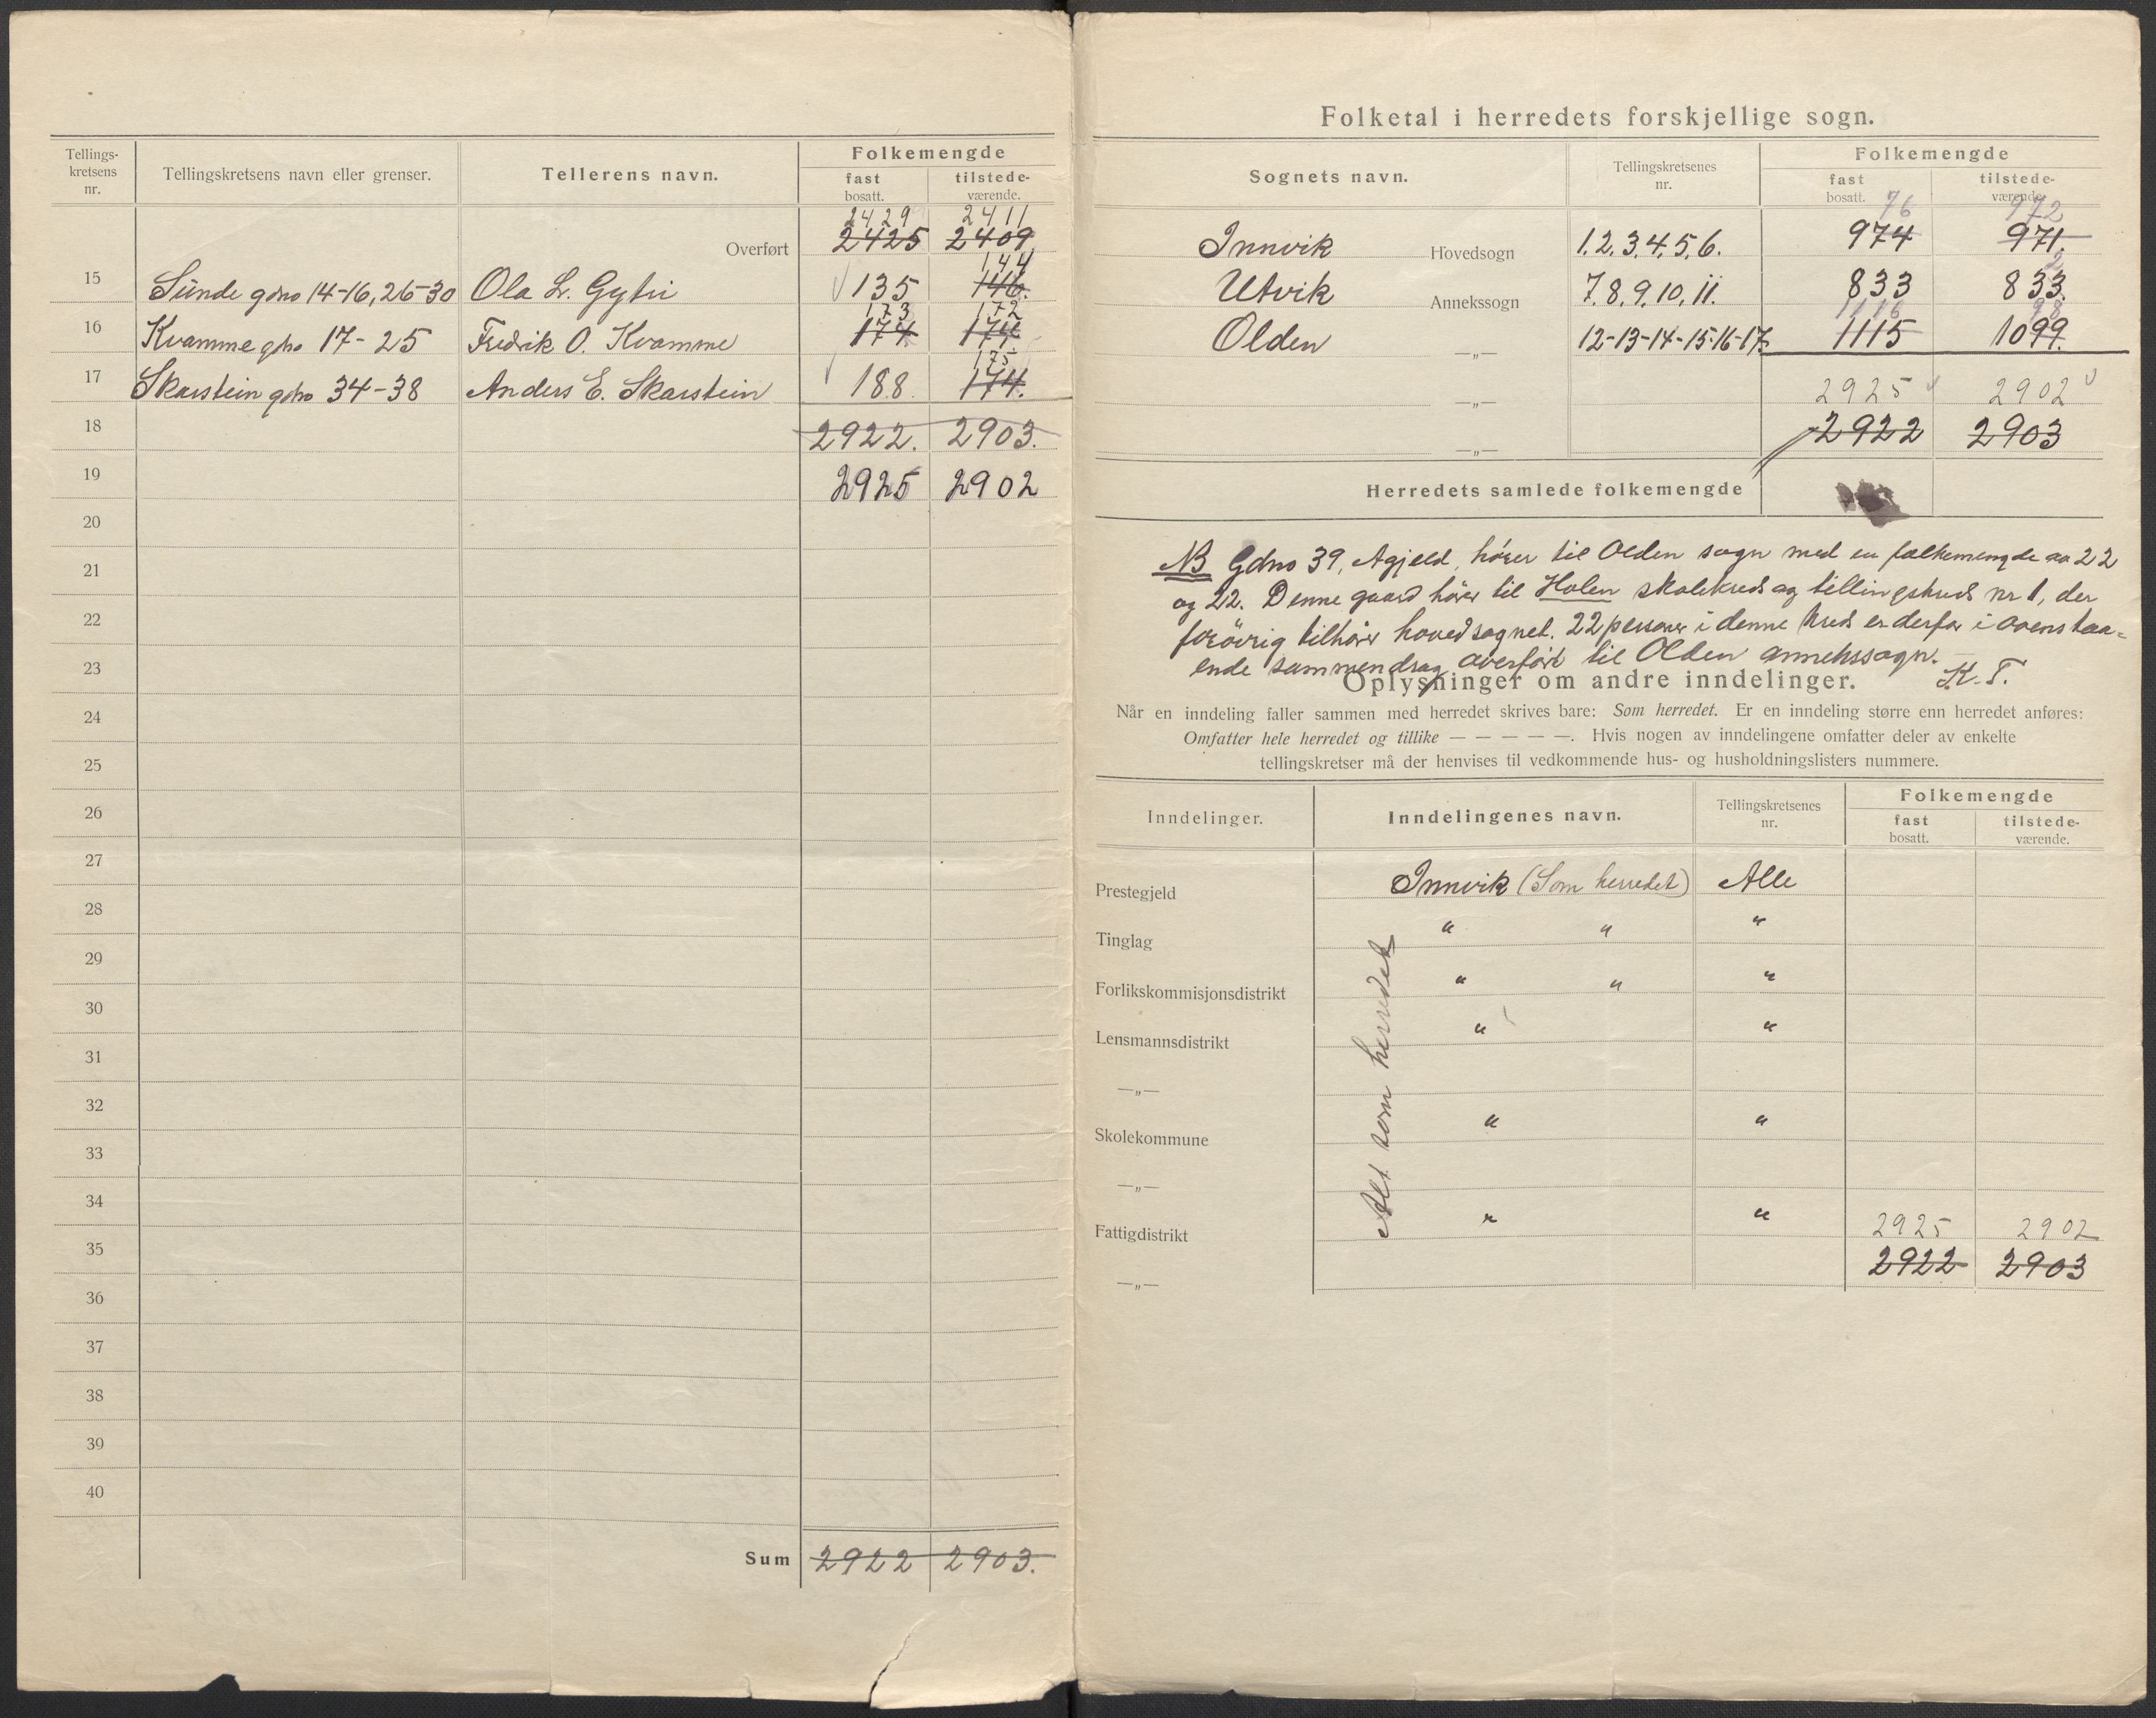 Tellings-
kretsens
nr.
Tellingskretsens navn eller grenser.
Tellerens navn.
Folkemengde
fast
bosatt.
tilstede-
værende.
2429 2411
Overført 2425 2409
144
15 Sunde gdno 14-16, 26-30 Ola L. Gytri 135 146.
173 172
16 Kvamme gdno 17-25 Fredrik O. Kvamme 174 174.
175
17 Skarstein gdno 34-38 Anders E. Skarstein 188. 174.
18 2922. 2903.
19 2925 2902
20
21
22
23
24
25
26
27
28
29
30
31
32
33
34
35
36
37
38
39
40
Sum 2922 2903.
Folketal i herredets forskjellige sogn.
Sognets navn.
Tellingskretsenes
nr.
Folkemengde
fast
bosatt.
tilstede-
værende.
76 972
Innvik Hovedsogn 1.2.3.4.5.6. 974 971.
Utvik Annekssogn 7.8.9.10.11. 833 833.
1116 98
Olden —„— 12-13-14-15-16-17. 1115 1099.
—„— 2925 2902
—„— 2922 2903
Herredets samlede folkemengde
NB Gdno 39, Agjeld, hører til Olden sogn med en folkemengde av 22
og 22. Denne gaard hører til Holen skolekreds og tellingskreds nr 1, der
forøvrig tilhører hovedsognet. 22 personer i denne kreds er derfor i ovenstaa=
ende sammendrag overført til Olden annekssogn.
K. T.
Oplysninger om andre inndelinger.
Når en inndeling faller sammen med herredet skrives bare: Som herredet. Er en inndeling større enn herredet anføres:
Omfatter hele herredet og tillike — — — — —. Hvis nogen av inndelingene omfatter deler av enkelte
tellingskretser må der henvises til vedkommende hus- og husholdningslisters nummere.
Inndelinger.
Inndelingenes navn.
Tellingskretsenes
nr.
Folkemengde
fast
bosatt.
tilstede-
værende.
Prestegjeld Innvik (Som herredet) Alle
Tinglag " " "
Forlikskommisjonsdistrikt " " "
Lensmannsdistrikt " "
—„—
Skolekommune " "
—„—
Fattigdistrikt " " 2925 2902
—„— 2922 2903
Alt som herredet